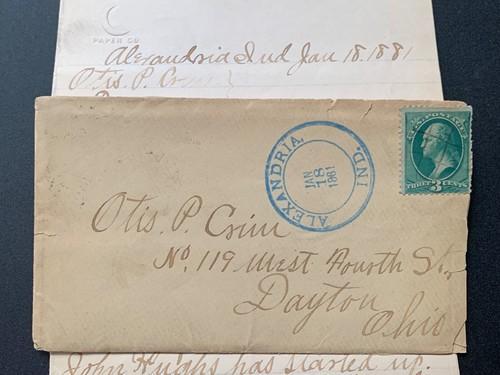 PAPER CO
Alexandria Ind Jan 18. 1881
Otis. P. Crim
U.S. POSTAGE
THREE 3 CENTS
ALEXANDRIA, IND.
JAN
18
1881
Otis. P. Crim
No. 119 West Fourth St.,
Dayton
Ohio
John Hughs has started up.